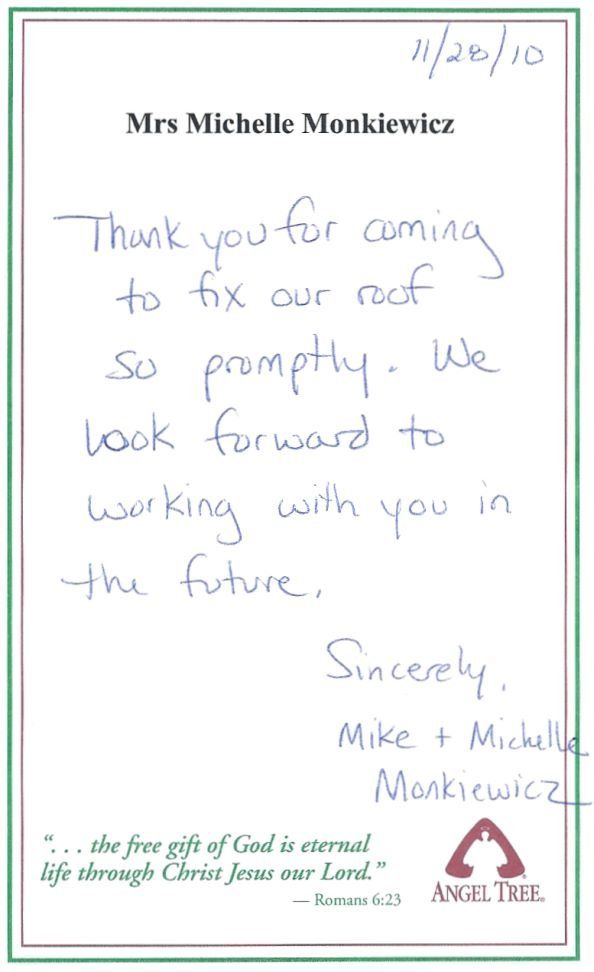 11/28/10
Mrs Michelle Monkiewicz
Thank you for coming
to fix our roof
so promptly. We
look forward to
working with you in
the future.
Sincerely,
Mike + Michelle
Monkiewicz
“. . . the free gift of God is eternal
life through Christ Jesus our Lord.”
— Romans 6:23
ANGEL TREE®